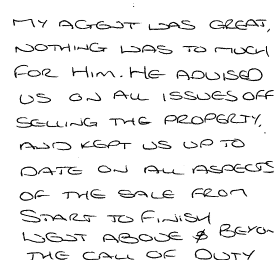 MY AGENT WAS GREAT,
NOTHING WAS TO MUCH
FOR HIM. HE ADVISED
US ON ALL ISSUES OFF
SELLING THE PROPERTY,
AND KEPT US UP TO
DATE ON ALL ASPECTS
OF THE SALE FROM
START TO FINISH
WENT ABOVE & BEYON
THE CALL OF DUTY